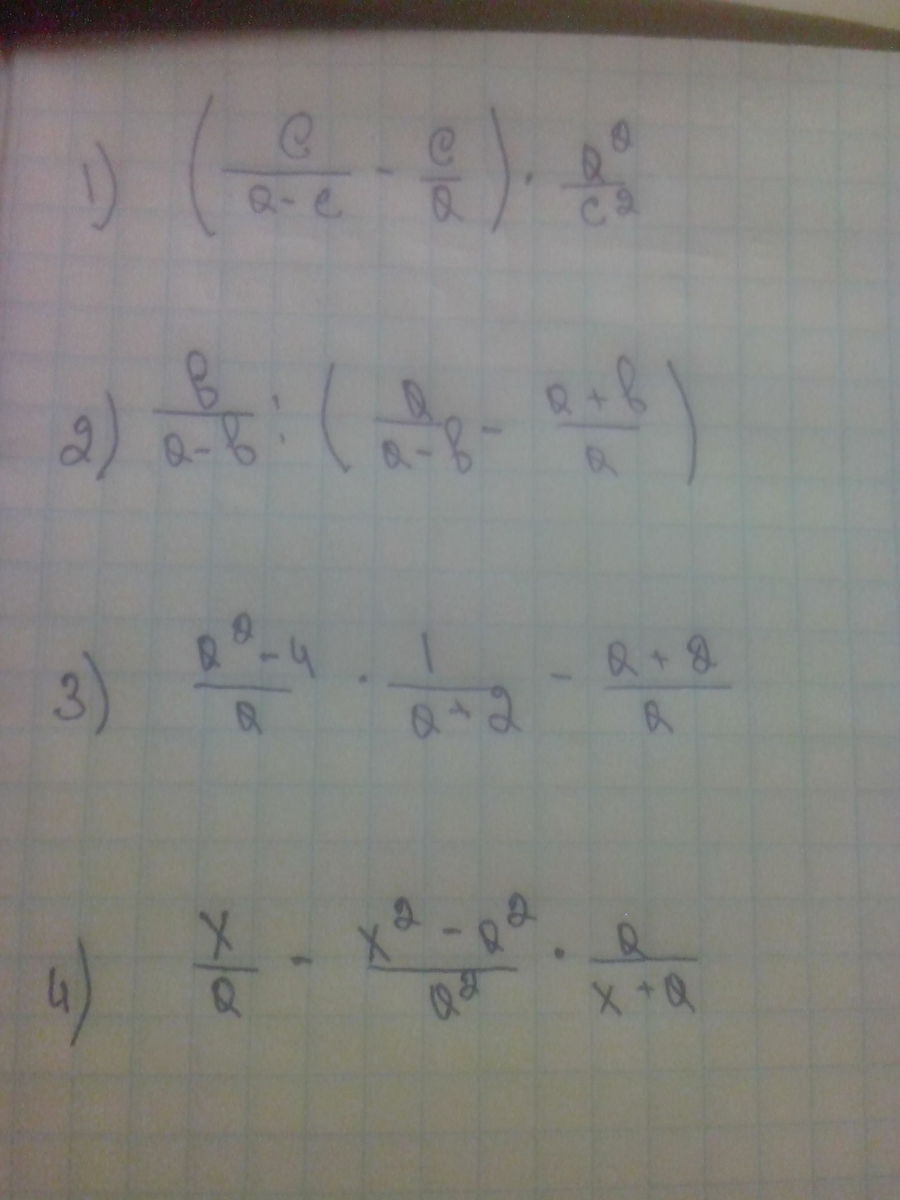 1) (c/(a-c) - c/a) · a²/c²
2) b/(a-b) : (a/(a-b) - (a+b)/a)
3) (a²-4)/a · 1/(a+2) - (a+2)/a
4) x/a - (x²-a²)/a² · a/(x+a)